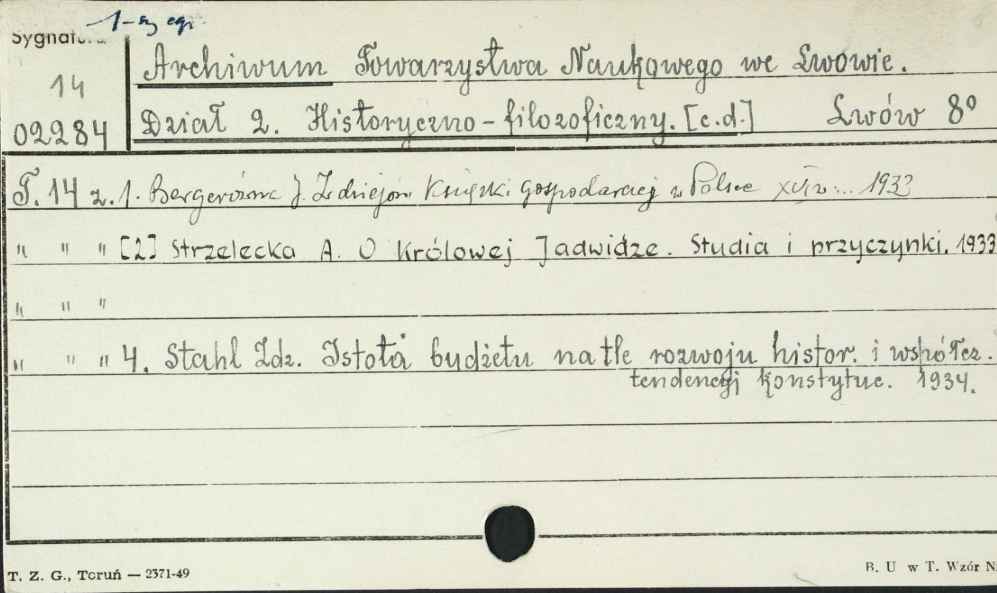 1-szy egz.
Sygnatura
14
02284
Archiwum Towarzystwa Naukowego we Lwowie.
Dział 2. Historyczno-filozoficzny. [c.d.] Lwów 8º
T. 14 z. 1. Bergerówna J. Z dziejów książki gospodarczej w Polsce XVI w... 1933
" " " [2] Strzelecka A. O Królowej Jadwidze. Studia i przyczynki. 1933
" " "
" " " 4. Stahl Zdz. Istota budżetu na tle rozwoju histor. i współcz.
tendencyj konstytuc. 1934.
T. Z. G., Toruń — 2371-49
B. U w T. Wzór N